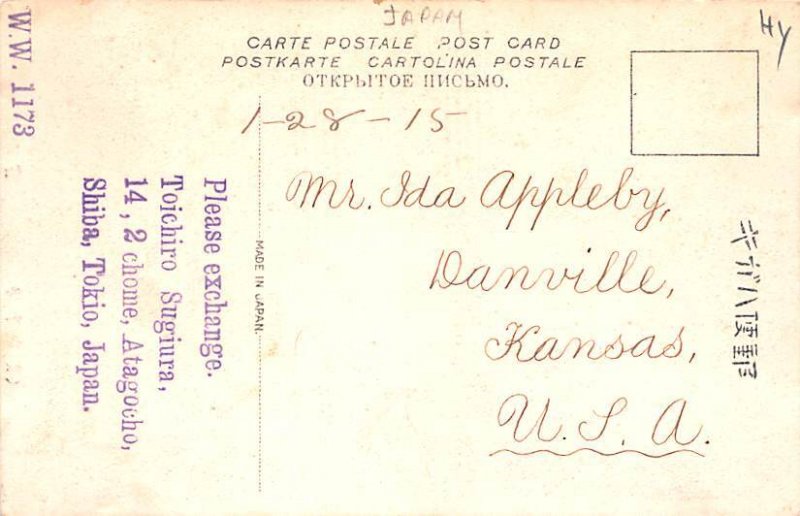 JAPAN
HY
CARTE POSTALE POST CARD
POSTKARTE CARTOLINA POSTALE
ОТКРЫТОЕ ПИСЬМО.
1-28-15
Mr. Ida Appleby,
Danville,
Kansas,
U. S. A.
W.W. 1173
Please exchange.
Toichiro Sugiura,
14, 2 chome, Atagocho,
Shiba, Tokio, Japan.
MADE IN JAPAN.
キガハ便郵